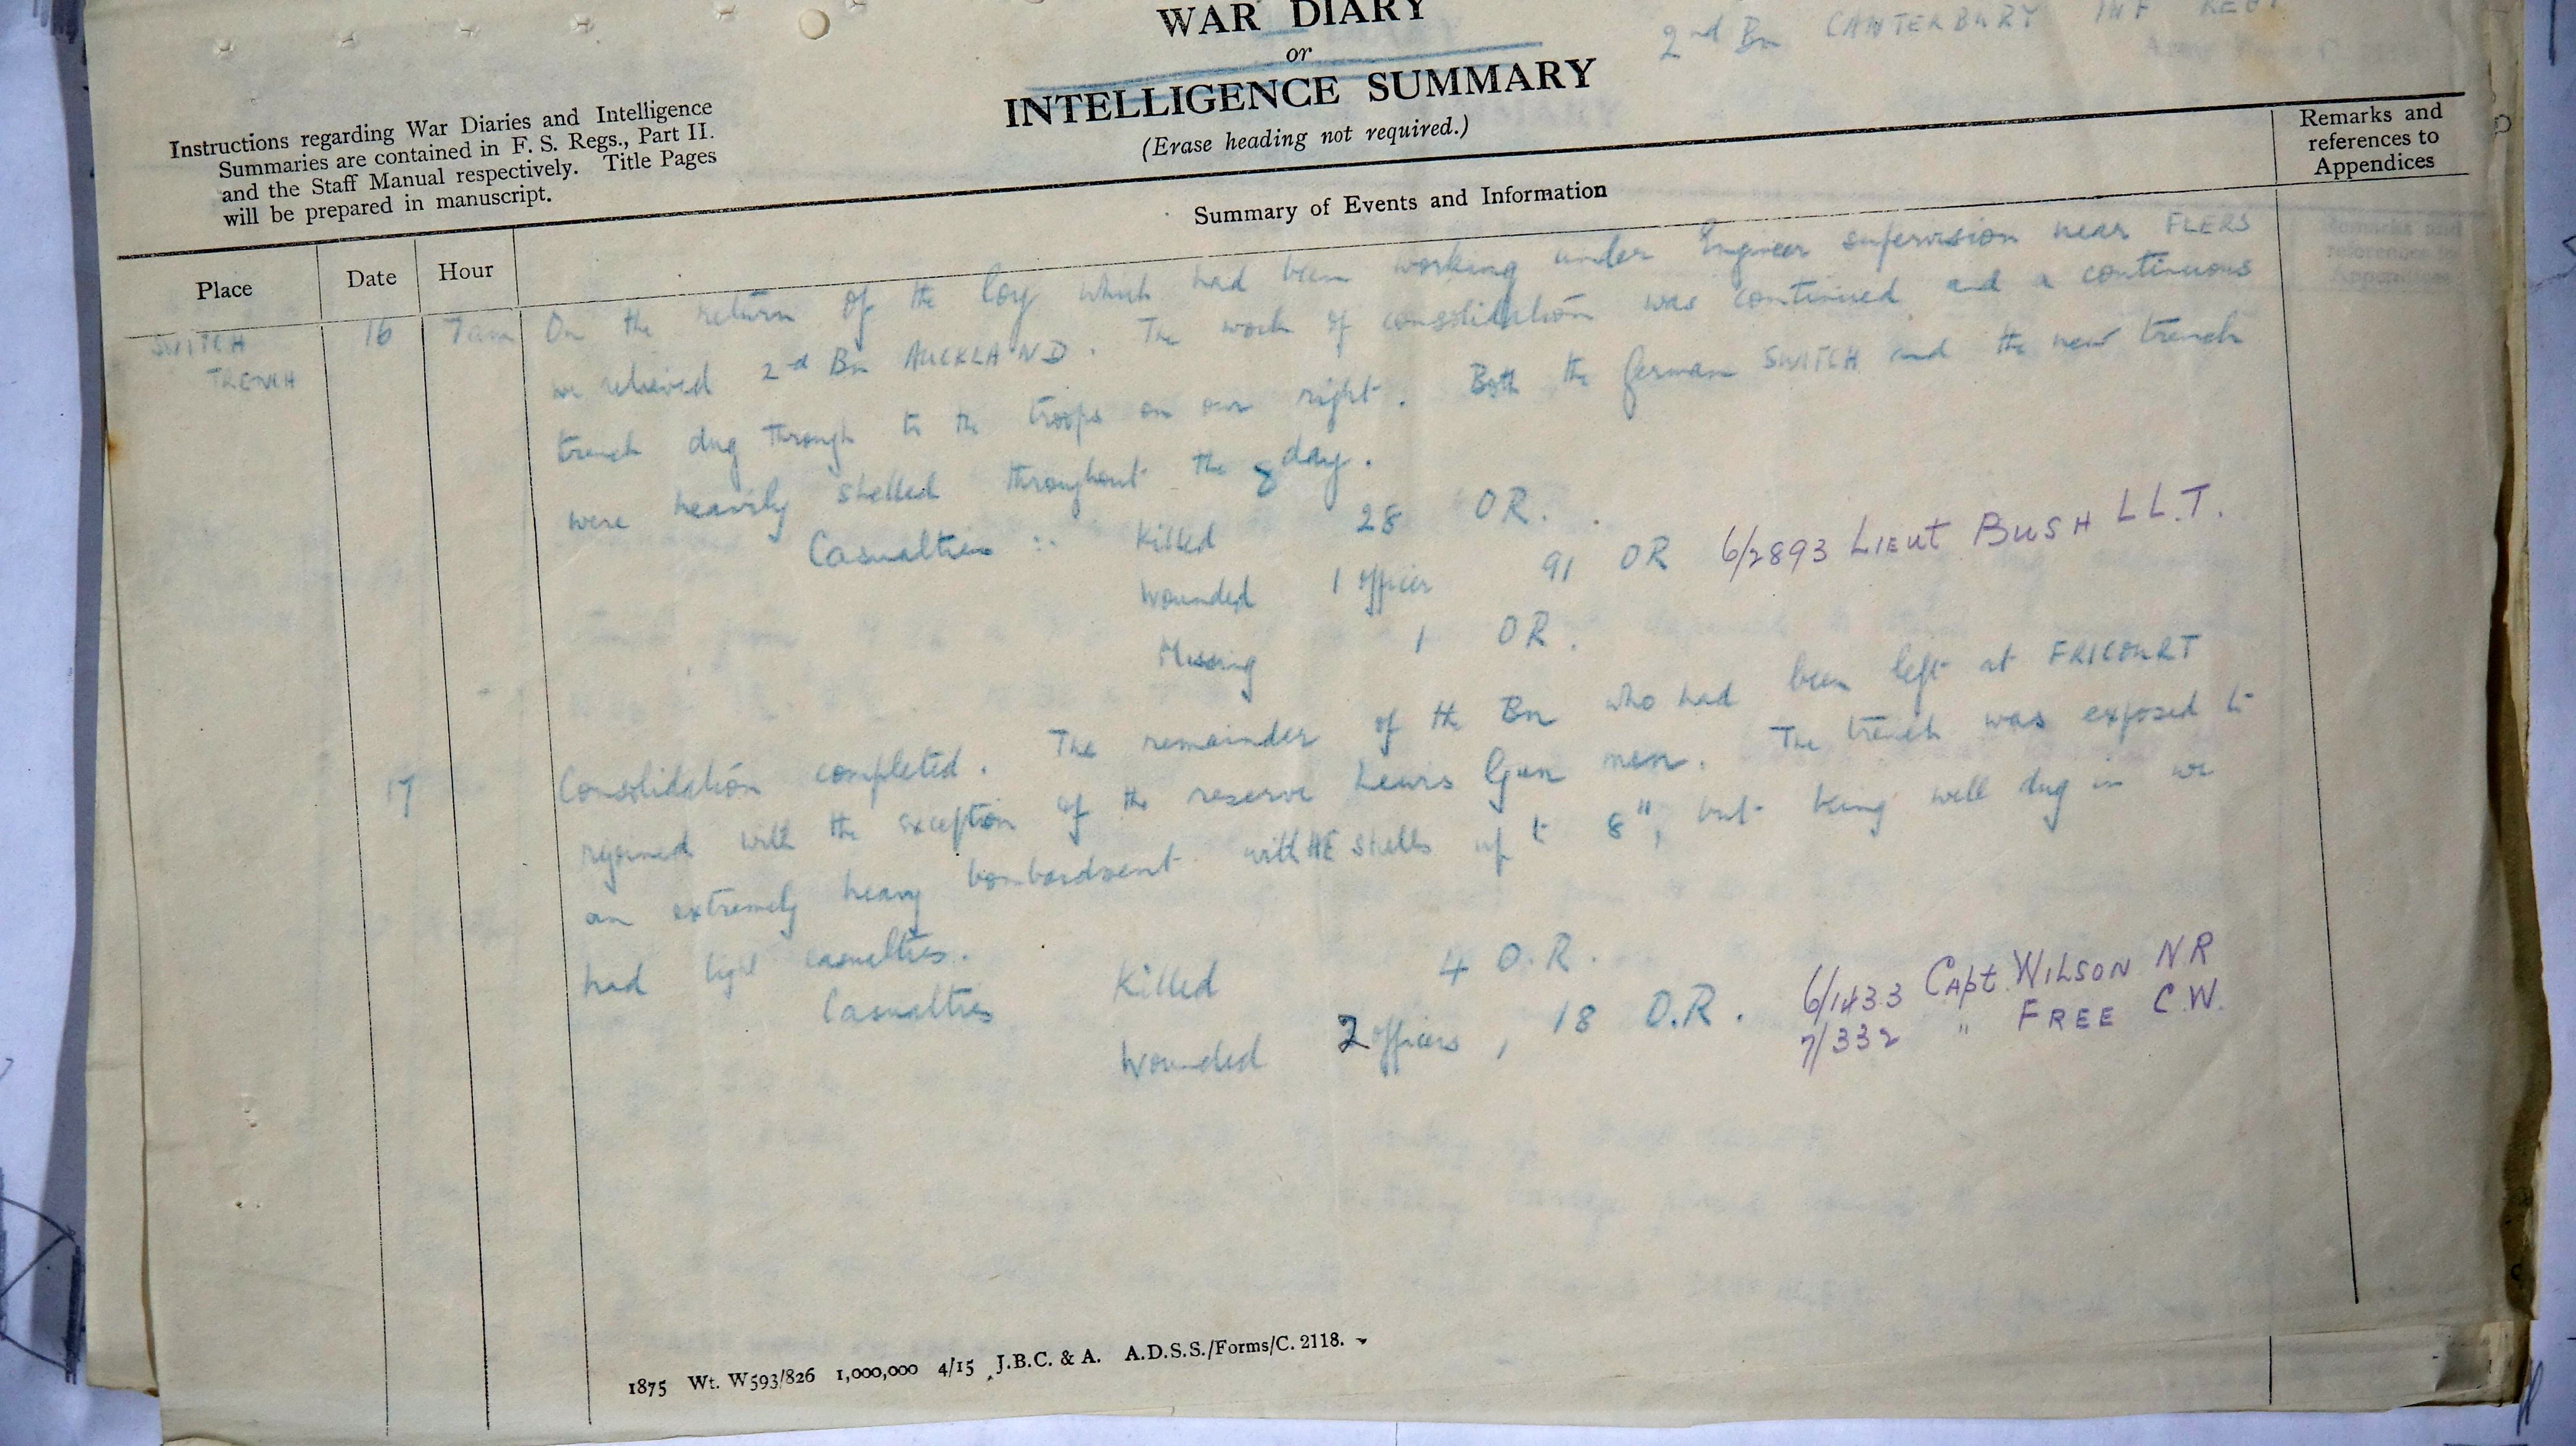 WAR DIARY
or
INTELLIGENCE SUMMARY
(Erase heading not required.)
2nd Bn CANTERBURY INF REGT
Instructions regarding War Diaries and Intelligence
Summaries are contained in F. S. Regs., Part II.
and the Staff Manual respectively. Title Pages
will be prepared in manuscript.
Place
Date
Hour
Summary of Events and Information
Remarks and
references to
Appendices
SWITCH
TRENCH
16
7am
On the return of the Coy which had been working under Engineer supervision near FLERS
we relieved 2nd Bn AUCKLAND. The work of consolidation was continued and a continuous
trench dug through to the troops on our right. Both the German SWITCH and the new trench
were heavily shelled throughout the day.
Casualties :- Killed 28 OR.
Wounded 1 officer 91 OR 6/2893 LIEUT BUSH LL.T.
Missing 1 OR.
17
Consolidation completed. The remainder of the Bn who had been left at FRICOURT
rejoined with the exception of the reserve Lewis Gun men. The trench was exposed to
an extremely heavy bombardment with HE shells up to 8", but being well dug in we
had light casualties.
Casualties Killed 4 O.R.
Wounded 2 officers, 18 O.R. 6/1433 CAPT. WILSON NR
7/332 " FREE C.W.
1875 Wt. W593/826 1,000,000 4/15 J.B.C. & A. A.D.S.S./Forms/C. 2118.